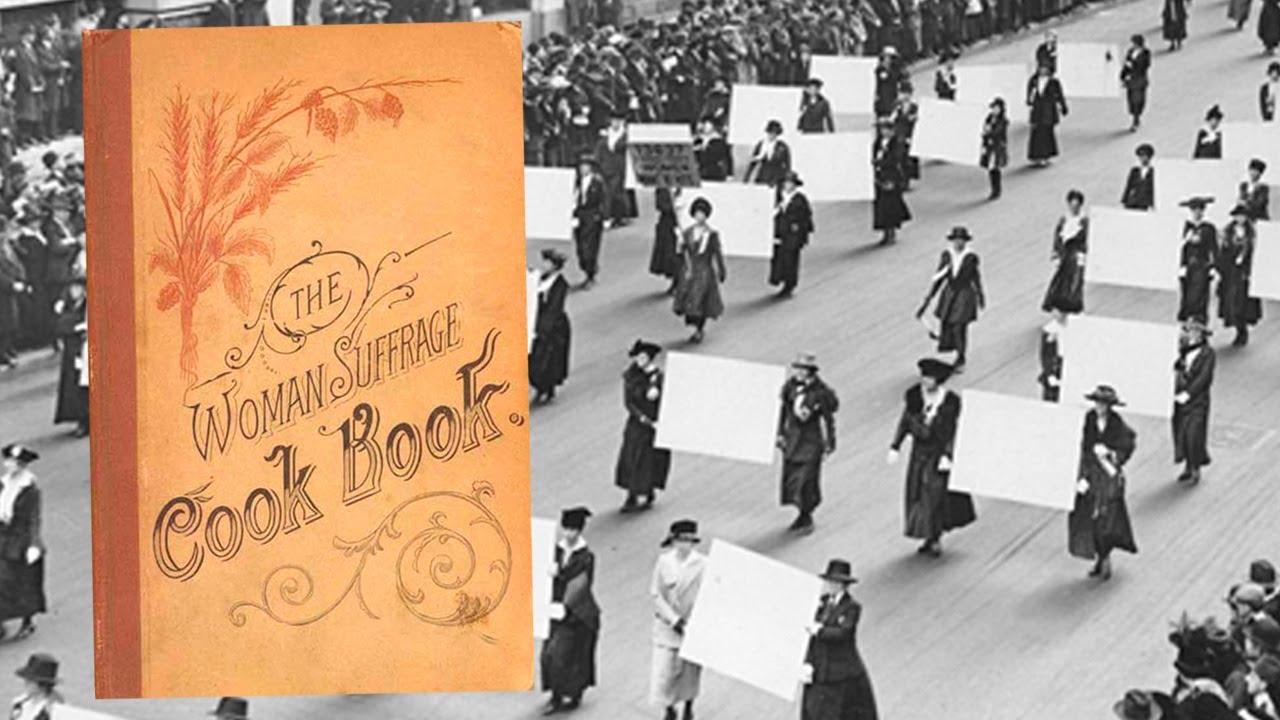 THE
WOMAN SUFFRAGE
Cook Book.